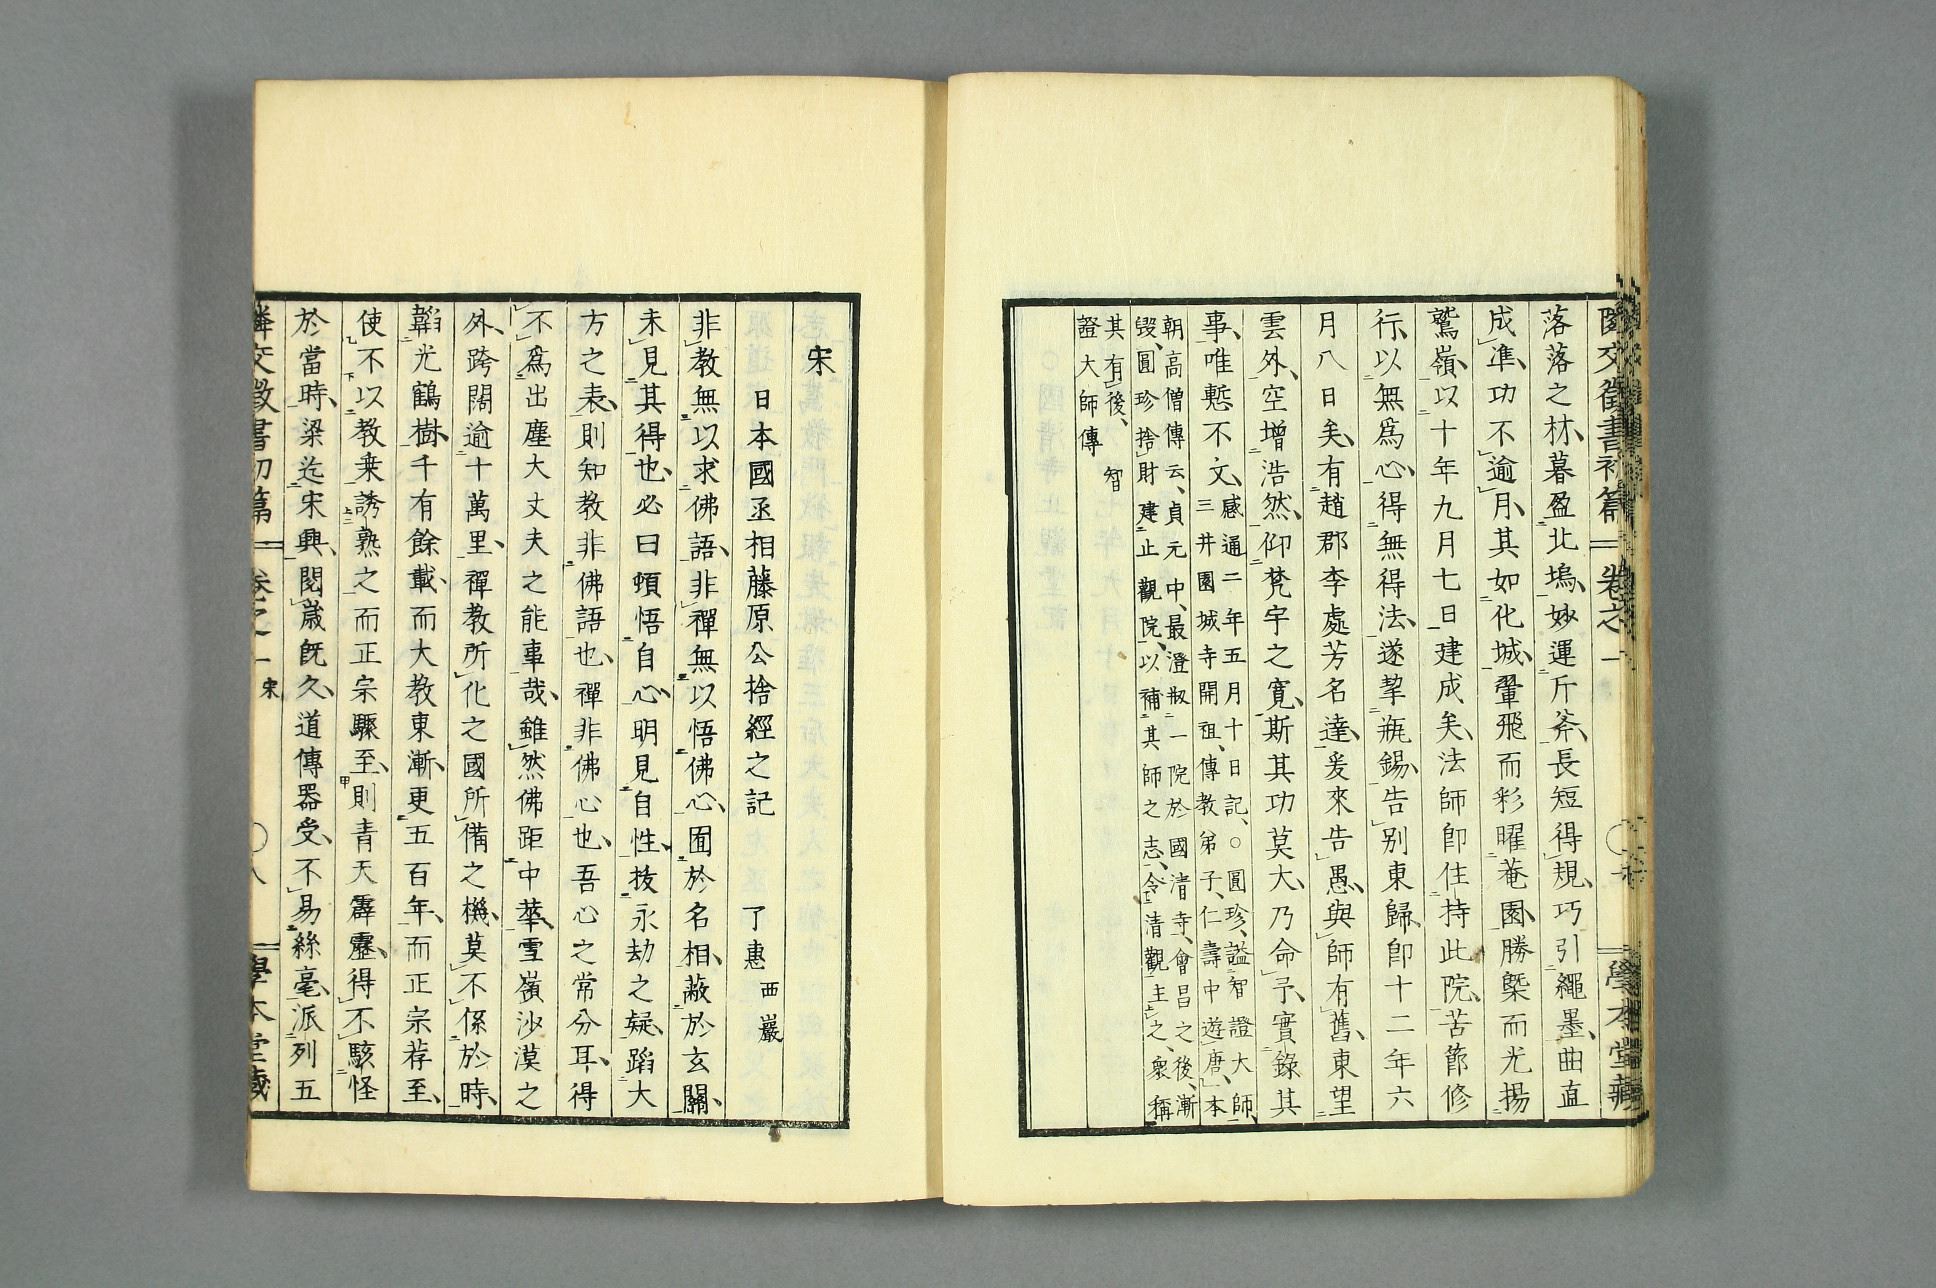 隣交徵書初篇 卷之一 學本堂藏
落落之材、暮盈北塢、妙運斤斧、長短得規、巧引繩墨、曲直
成凖、功不逾月、其如化城、翬飛而彩曜菴園、勝槩而光揚
鷲嶺、以十年九月七日建成矣、法師卽住持此院、苦節修
行、以無爲心、得無得法、遂挈瓶錫、告別東歸、卽十二年六
月八日矣、有趙郡李處芳名達、爰來告愚、與師有舊、東望
雲外、空增浩然、仰梵宇之寬、斯其功莫大、乃命予、實錄其
事、唯慙不文、
感通二年五月十日記、○圓珍、謚智證大師、
三井園城寺開祖、傳教弟子、仁壽中遊唐、本
朝高僧傳云、貞元中、最澄扱一院於國清寺、會昌之後、漸
毀、圓珍捨財建止觀院、以補其師之志、令清觀主之、衆稱
其有後、智
證大師傳
宋
日本國丞相藤原公捨經之記 了惠 西巖
非教無以求佛語、非禪無以悟佛心、囿於名相、蔽於玄關、
未見其得也、必曰頓悟自心、明見自性、拔永劫之疑、蹈大
方之表、則知教非佛語也、禪非佛心也、吾心之常分耳、得
不爲出塵大丈夫之能事哉、雖然佛距中華、雪嶺沙漠之
外、跨闊逾十萬里、禪教所化之國所備之機、莫不係於時、
韜光鶴樹、千有餘載、而大教東漸、更五百年、而正宗荐至、
使不以教乗誘熟之而正宗驟至、則青天霹靂、得不駭怪
於當時、梁迄宋興、閱歲旣久、道傳器受、不易絲毫、派列五
隣交徵書初篇 卷之一 宋 八 學本堂藏